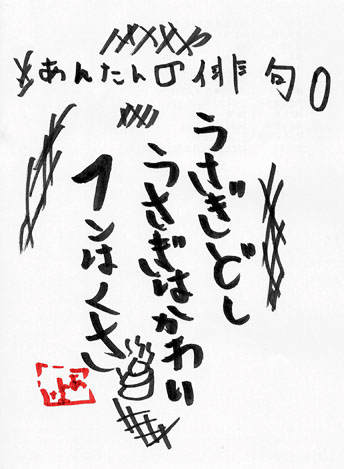 あんたんの俳句
うさぎしどし
うさぎはかわい
フンはくさい